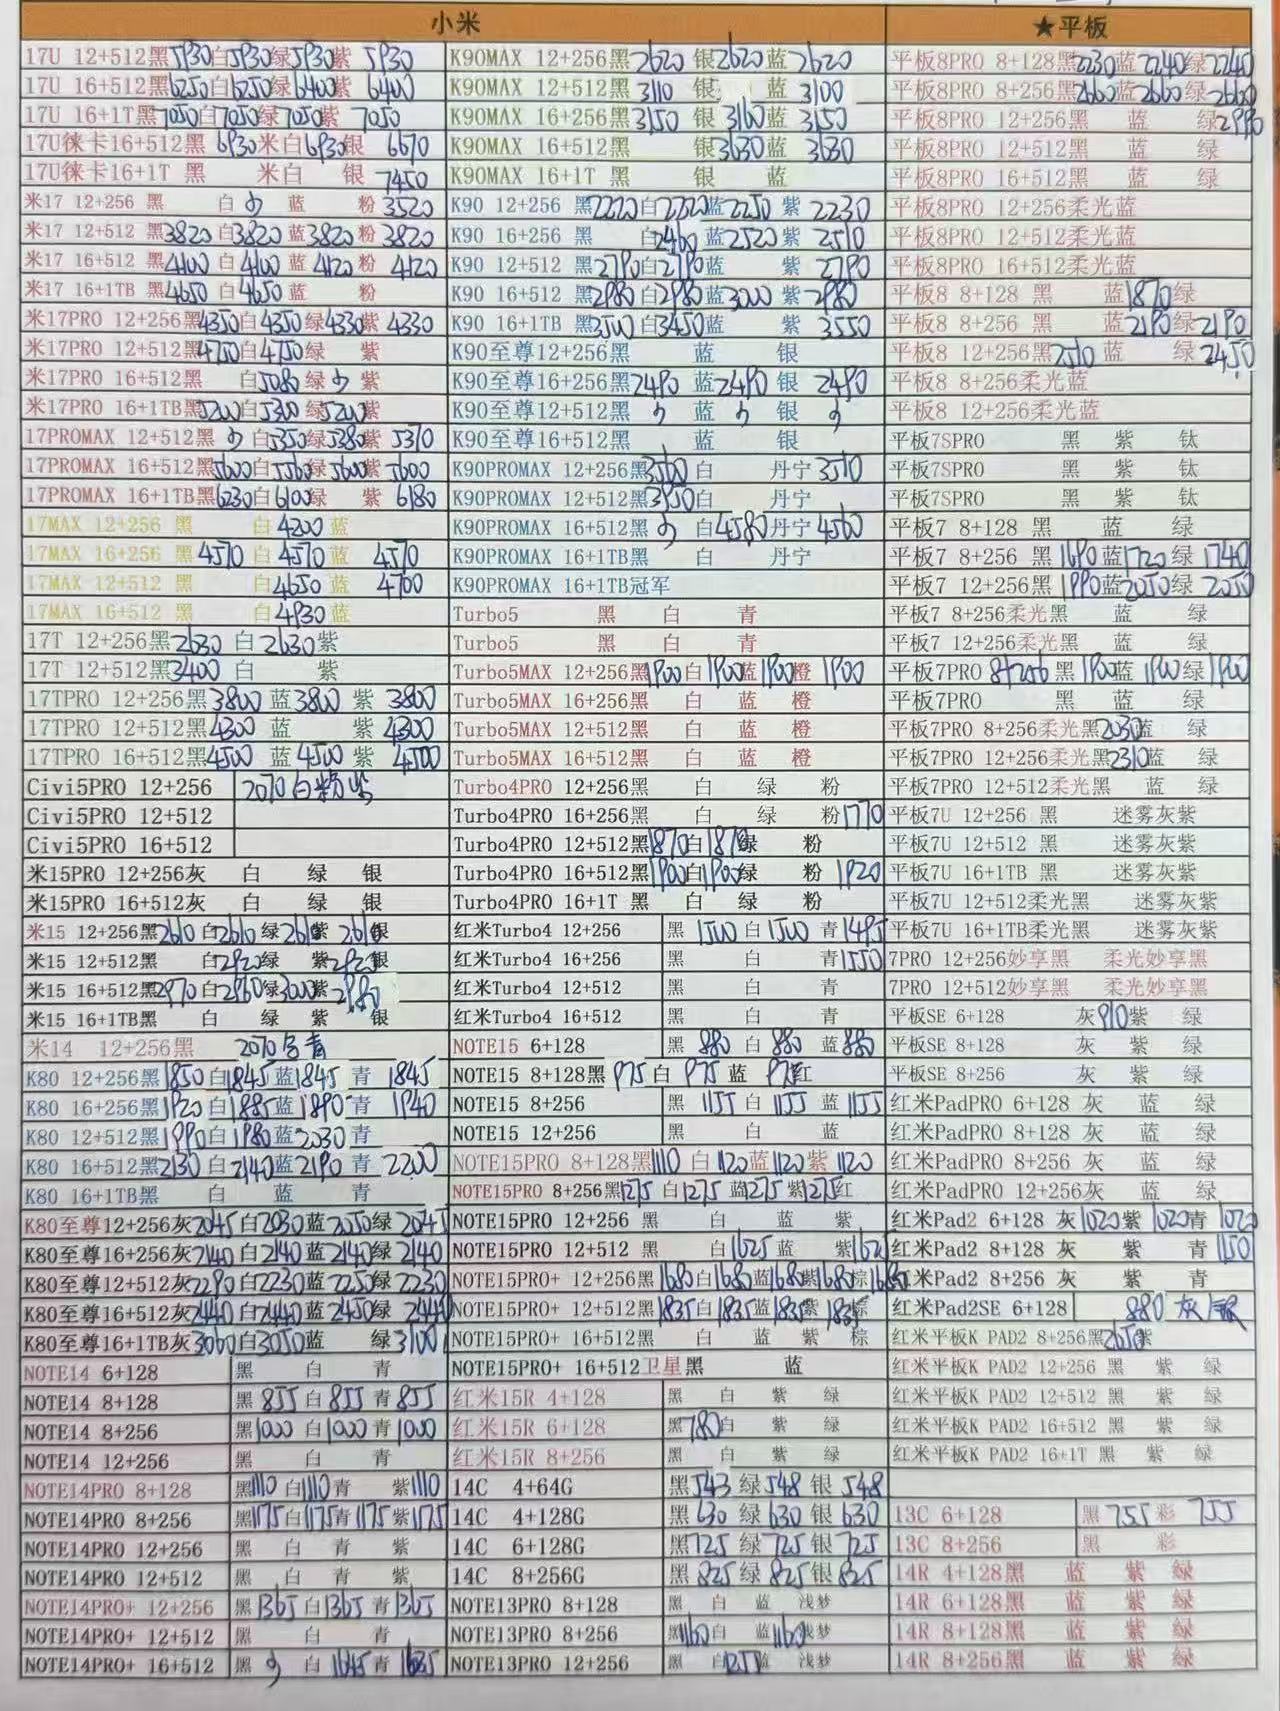 小米
17U 12+512黑5930白5930绿5930紫 5930
17U 16+512黑6250白6250绿6400紫 6400
17U 16+1T黑7050白7050绿7050紫 7050
17U徕卡16+512黑 6930米白6930银 6670
17U徕卡16+1T 黑 米白 银 7450
米17 12+256 黑 白 蓝 粉3520
米17 12+512 黑3820白3820蓝3820粉 3820
米17 16+512 黑4100 白4100 蓝4120粉 4120
米17 16+1TB 黑4650 白4650蓝 粉
米17PRO 12+256黑4350白4350绿4330紫 4330
米17PRO 12+512黑4750白4750绿 紫
米17PRO 16+512黑 白5080 绿 紫
米17PRO 16+1TB黑5200白5300 绿5200紫
17PROMAX 12+512黑 白5350绿5380紫 5370
17PROMAX 16+512黑5600白5560绿5600紫 5600
17PROMAX 16+1TB黑6230白6100绿 紫 6180
17MAX 12+256 黑 白4200 蓝
17MAX 16+256 黑4570 白4570 蓝 4570
17MAX 12+512 黑 白4650 蓝 4700
17MAX 16+512 黑 白4930蓝
17T 12+256黑2630 白 2630紫
17T 12+512黑3400 白 紫
17TPRO 12+256黑3800 蓝3800 紫 3800
17TPRO 12+512黑4300 蓝 紫 4300
17TPRO 16+512黑4500 蓝 4500 紫 4500
Civi5PRO 12+256 2070白粉紫
Civi5PRO 12+512
Civi5PRO 16+512
米15PRO 12+256灰 白 绿 银
米15PRO 16+512灰 白 绿 银
米15 12+256黑2610白2610绿2610紫 2610银
米15 12+512黑 白2920绿 紫2920银
米15 16+512黑2970白2960绿3000紫2980
米15 16+1TB黑 白 绿 紫 银
米14 12+256黑 2070含青
K80 12+256黑1850白1845蓝1845 青 1845
K80 16+256黑1920白1885蓝1890青 1940
K80 12+512黑1990白1980蓝2030青
K80 16+512黑2130白2140蓝2190青 2200
K80 16+1TB黑 白 蓝 青
K80至尊12+256灰2045白2030蓝2050绿 2045
K80至尊16+256灰2140白2140蓝2140绿 2140
K80至尊12+512灰2290白2230蓝2250绿 2230
K80至尊16+512灰2440白2440蓝2450绿 2440
K80至尊16+1TB灰3060白3050蓝 绿3100
NOTE14 6+128 黑 白 青
NOTE14 8+128 黑 855白 855青855
NOTE14 8+256 黑1000白1000青1000
NOTE14 12+256 黑 白 青
NOTE14PRO 8+128 黑1110 白1110青 紫1110
NOTE14PRO 8+256 黑1175白1175青1175紫1175
NOTE14PRO 12+256 黑 白 青 紫
NOTE14PRO 12+512 黑 白 青 紫
NOTE14PRO+ 12+256 黑1365白1365青1365
NOTE14PRO+ 12+512 黑 白 青
NOTE14PRO+ 16+512 黑 白1645青1635
K90MAX 12+256黑2620 银2620蓝2620
K90MAX 12+512黑3110 银 蓝 3100
K90MAX 16+256黑3150 银3160蓝3150
K90MAX 16+512黑 银3630蓝 3630
K90MAX 16+1T 黑 银 蓝
K90 12+256 黑2220白2220蓝2250 紫 2230
K90 16+256 黑 白2460 蓝2520紫 2510
K90 12+512 黑2790白2790蓝 紫 2790
K90 16+512 黑2980白2980蓝3000紫 2980
K90 16+1TB 黑3500白3450蓝 紫 3550
K90至尊12+256黑 蓝 银
K90至尊16+256黑2490 蓝2490 银 2490
K90至尊12+512黑 蓝 银
K90至尊16+512黑 蓝 银
K90PROMAX 12+256黑3560白 丹宁3510
K90PROMAX 12+512黑3950白 丹宁
K90PROMAX 16+512黑 白4580丹宁4560
K90PROMAX 16+1TB黑 白 丹宁
K90PROMAX 16+1TB冠军
Turbo5 黑 白 青
Turbo5 黑 白 青
Turbo5MAX 12+256黑1900白1900蓝1900橙 1900
Turbo5MAX 16+256黑 白 蓝 橙
Turbo5MAX 12+512黑 白 蓝 橙
Turbo5MAX 16+512黑 白 蓝 橙
Turbo4PRO 12+256黑 白 绿 粉
Turbo4PRO 16+256黑 白 绿 粉1770
Turbo4PRO 12+512黑1870白1870绿 粉
Turbo4PRO 16+512黑1900白1900绿 粉 1920
Turbo4PRO 16+1T 黑 白 绿 粉
红米Turbo4 12+256 黑 1500白1500 青1495
红米Turbo4 16+256 黑 白 青1550
红米Turbo4 12+512 黑 白 青
红米Turbo4 16+512 黑 白 青
NOTE15 6+128 黑 880 白 880 蓝880
NOTE15 8+128黑 975白 975 蓝 975红
NOTE15 8+256 黑 1155白1155 蓝1155
NOTE15 12+256 黑 白 蓝
NOTE15PRO 8+128黑1110 白1120蓝1120紫 1120
NOTE15PRO 8+256黑1275 白1275 蓝1275紫1275红
NOTE15PRO 12+256 黑 白 蓝 紫
NOTE15PRO 12+512 黑 白1625蓝 紫1625
NOTE15PRO+ 12+256黑1680白1680蓝1680紫1680棕1680
NOTE15PRO+ 12+512黑1835白1835蓝1835紫1835棕
NOTE15PRO+ 16+512黑 白 蓝 紫 棕
NOTE15PRO+ 16+512卫星黑 蓝
红米15R 4+128 黑 白 紫 绿
红米15R 6+128 黑780白 紫 绿
红米15R 8+256 黑 白 紫 绿
14C 4+64G 黑543 绿548 银 548
14C 4+128G 黑630 绿630 银630
14C 6+128G 黑725 绿725银725
14C 8+256G 黑825绿825银825
NOTE13PRO 8+128 黑 白 蓝 浅梦
NOTE13PRO 8+256 黑1160白 蓝1160浅梦
NOTE13PRO 12+256 黑 白1255蓝 浅梦
★平板
平板8PRO 8+128黑2230蓝2240绿2240
平板8PRO 8+256黑2600蓝2600绿2600
平板8PRO 12+256黑 蓝 绿2990
平板8PRO 12+512黑 蓝 绿
平板8PRO 16+512黑 蓝 绿
平板8PRO 12+256柔光蓝
平板8PRO 12+512柔光蓝
平板8PRO 16+512柔光蓝
平板8 8+128 黑 蓝1870绿
平板8 8+256 黑 蓝2190绿2190
平板8 12+256黑2510 蓝 绿2450
平板8 8+256柔光蓝
平板8 12+256柔光蓝
平板7SPRO 黑 紫 钛
平板7SPRO 黑 紫 钛
平板7SPRO 黑 紫 钛
平板7 8+128 黑 蓝 绿
平板7 8+256 黑1690蓝1720绿 1740
平板7 12+256黑 1990蓝2050绿 2050
平板7 8+256柔光黑 蓝 绿
平板7 12+256柔光黑 蓝 绿
平板7PRO 8+256 黑 1900蓝 1900绿1900
平板7PRO 黑 蓝 绿
平板7PRO 8+256柔光黑2030蓝 绿
平板7PRO 12+256柔光黑2310蓝 绿
平板7PRO 12+512柔光黑 蓝 绿
平板7U 12+256 黑 迷雾灰紫
平板7U 12+512 黑 迷雾灰紫
平板7U 16+1TB 黑 迷雾灰紫
平板7U 12+512柔光黑 迷雾灰紫
平板7U 16+1TB柔光黑 迷雾灰紫
7PRO 12+256妙享黑 柔光妙享黑
7PRO 12+512妙享黑 柔光妙享黑
平板SE 6+128 灰910紫 绿
平板SE 8+128 灰 紫 绿
平板SE 8+256 灰 紫 绿
红米PadPRO 6+128 灰 蓝 绿
红米PadPRO 8+128 灰 蓝 绿
红米PadPRO 8+256 灰 蓝 绿
红米PadPRO 12+256灰 蓝 绿
红米Pad2 6+128 灰1020紫 1020青 1020
红米Pad2 8+128 灰 紫 青1150
红米Pad2 8+256 灰 紫 青
红米Pad2SE 6+128 880 灰/银
红米平板K PAD2 8+256黑2650紫
红米平板K PAD2 12+256 黑 紫 绿
红米平板K PAD2 12+512 黑 紫 绿
红米平板K PAD2 16+512 黑 紫 绿
红米平板K PAD2 16+1T 黑 紫 绿
13C 6+128 黑 755彩 755
13C 8+256 黑 彩
14R 4+128黑 蓝 紫 绿
14R 6+128黑 蓝 紫 绿
14R 8+128黑 蓝 紫 绿
14R 8+256黑 蓝 紫 绿